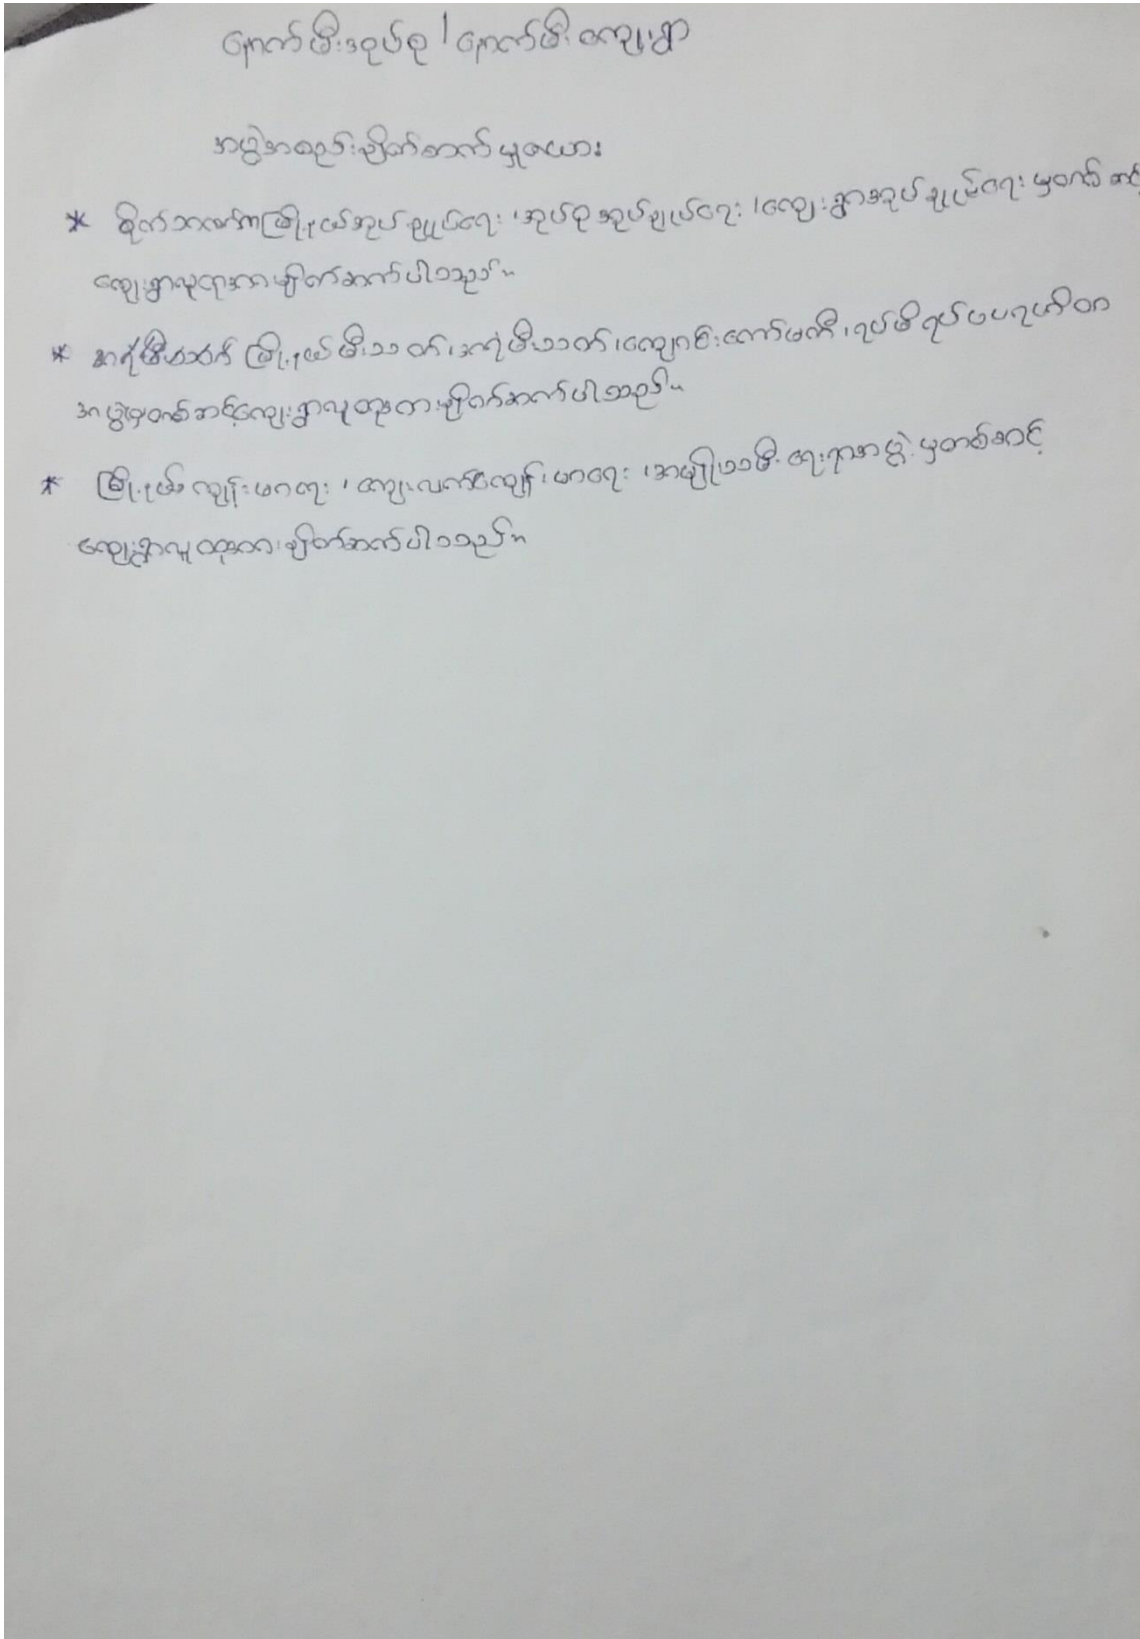 နောက်မီးအုပ်စု / နောက်မီးကျေးရွာ
အဖွဲ့အစည်းချိတ်ဆက်မှုဇယား
* မြို့နယ်အုပ်ချုပ်ရေး ၊ အုပ်စုအုပ်ချုပ်ရေး ၊ ကျေးရွာအုပ်ချုပ်ရေး မှတစ်ဆင့်
ကျေးရွာလူထုအားချိတ်ဆက်ပါသည်။
* အရံမီးသတ် မြို့နယ်မီးသတ် ၊ အရံမီးသတ် ၊ ကျောင်းကော်မတီ ၊ ရပ်မိရပ်ဖပရဟိတ
အဖွဲ့မှတစ်ဆင့်ကျေးရွာလူထုအားချိတ်ဆက်ပါသည်။
* မြို့နယ်ကျန်းမာရေး ၊ ကျေးလက်ကျန်းမာရေး ၊ အမျိုးသမီးရေးရာအဖွဲ့ မှတစ်ဆင့်
ကျေးရွာလူထုအားချိတ်ဆက်ပါသည်။